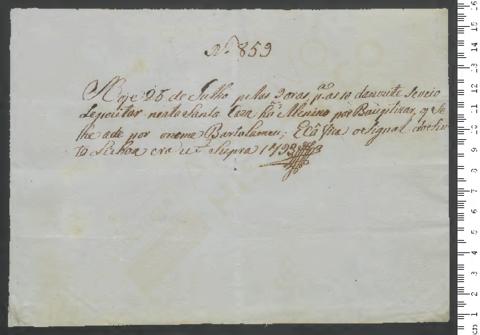 Nº 859
Hoje 25 de Julho pelas 9 oras pª as 10 da noute se veio
depozitar nesta Santa Caza hũ Menino por Baupitizar, q̃ se
lhe ade por o nome Bartolameu;
to Lisboa era ut Supra 1793